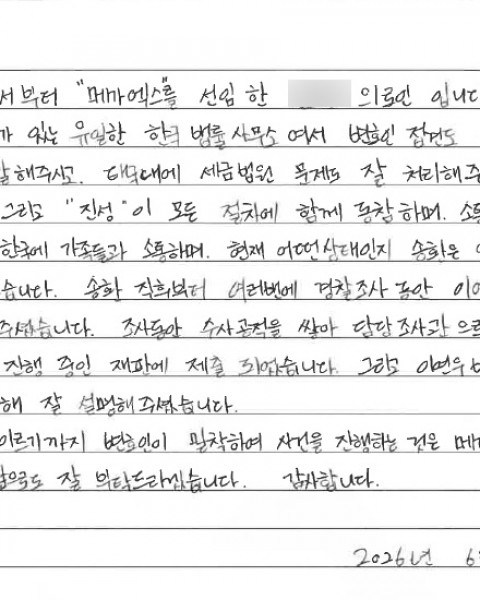 서부터 "메가엑스"를 선임한 의뢰인 입니다
가 있는 유일한 한국 법률사무소 여서 변호인 접견도
잘해주시고. 태국내에 세금법원 문제도 잘 처리해주
그리고 "진성"이 모든 절차에 함께 동참하며. 소통
한국에 가족들과 소통하며. 현재 어떤상태인지 송환은
습니다. 송환 직히부터 여러번에 경찰조사 동안 이
주셨습니다. 조사동안 수사공적을 쌓아 담당조사관으로
진행 중인 재판에 제출 되었습니다. 그리고 이연우
해 잘 설명해주셨습니다.
이르기까지 변호인이 밀착하여 사건을 진행하는 것은 메가
앞으로도 잘 부탁드리겠습니다. 감사합니다.
2026년 6